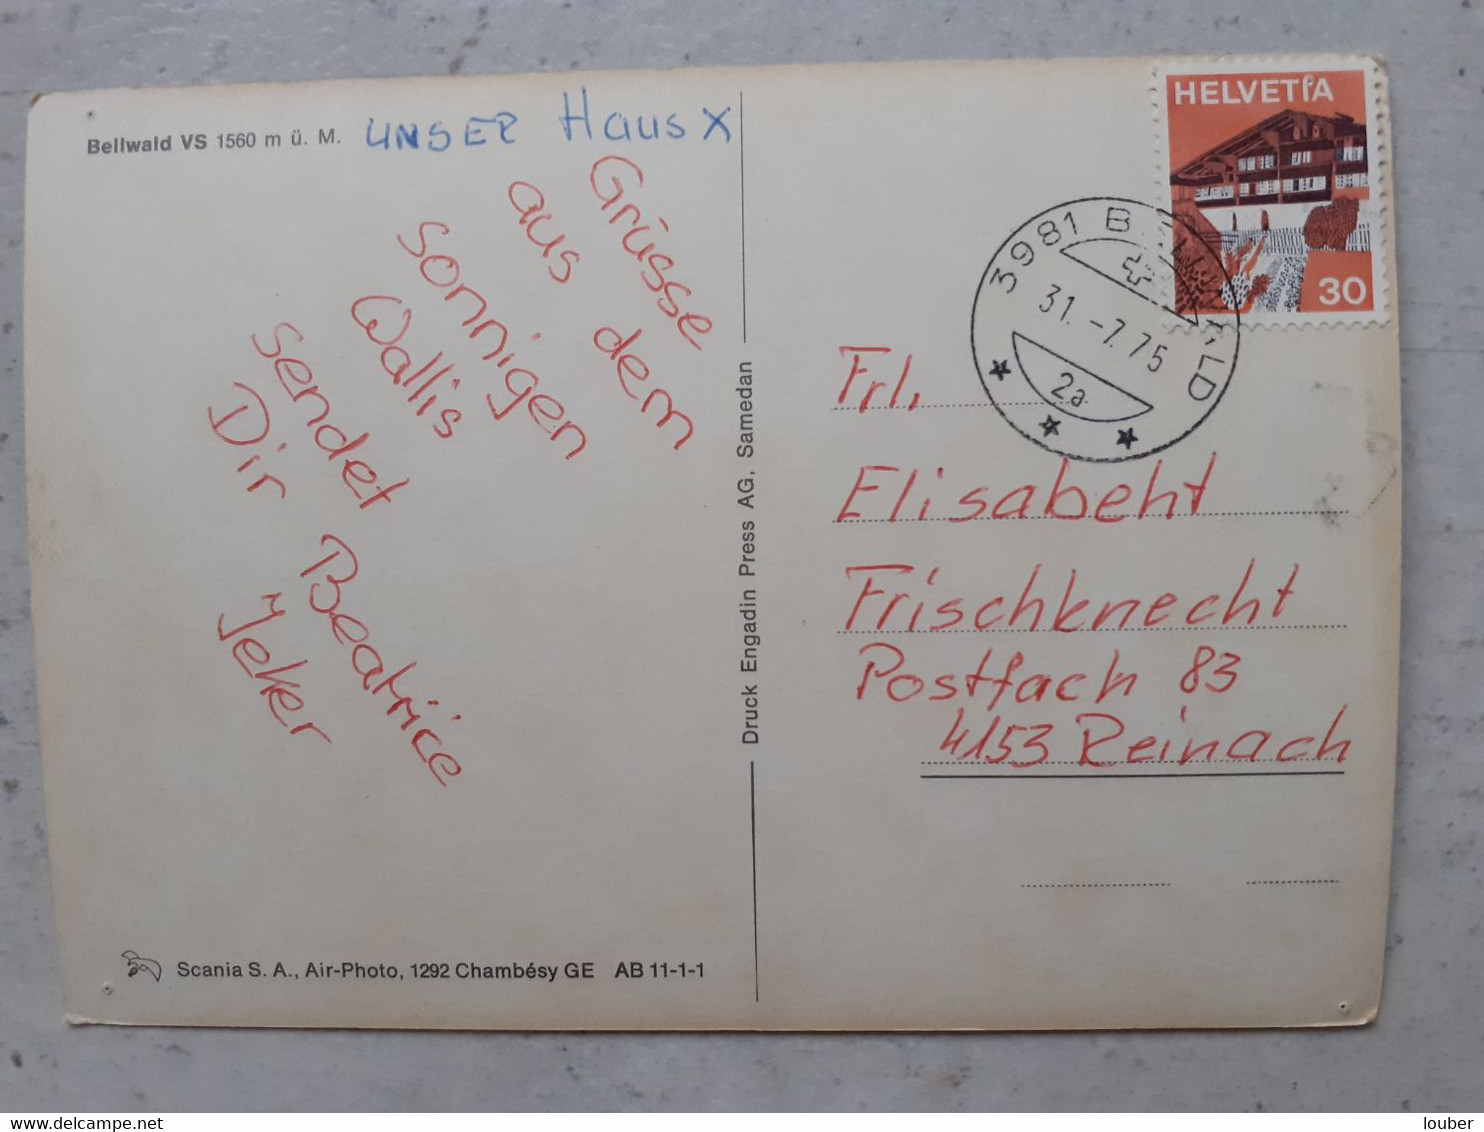 Bellwald VS 1560 m ü. M.
UNSER Haus X
Grüsse
aus dem
sonnigen
Wallis
sendet
Dir Beatrice
Jeker
Druck Engadin Press AG, Samedan
Scania S. A., Air-Photo, 1292 Chambésy GE AB 11-1-1
HELVETIA
30
3981 B LD
31.-7.75
2a
Frl.
Elisabeht
Frischknecht
Postfach 83
4153 Reinach
www.delcampe.net
louber